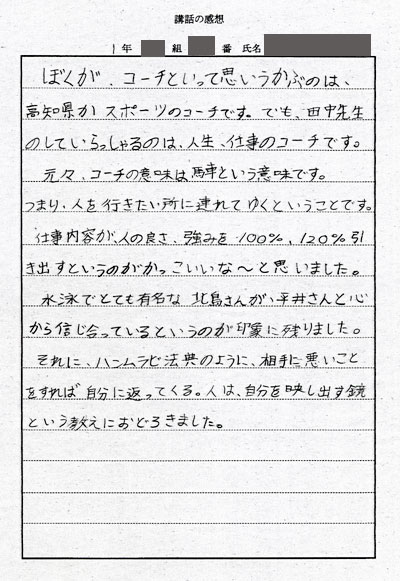 講話の感想
1年 組 番 氏名
ぼくが、コーチといって思いうかぶのは、
高知県か スポーツのコーチです。でも、田中先生
のしていらっしゃるのは、人生、仕事のコーチです。
元々、コーチの意味は馬車という意味です。
つまり、人を行きたい所に連れてゆくということです。
仕事内容が、人の良さ、強みを100%、120%引
き出すというのがかっこいいな〜と思いました。
水泳でとても有名な 北島さんが、平井さんと心
から信じ合っているというのが印象に残りました。
それに、ハンムラビ法典のように、相手に悪いこと
をすれば自分に返ってくる。人は、自分を映し出す鏡
という教えにおどろきました。